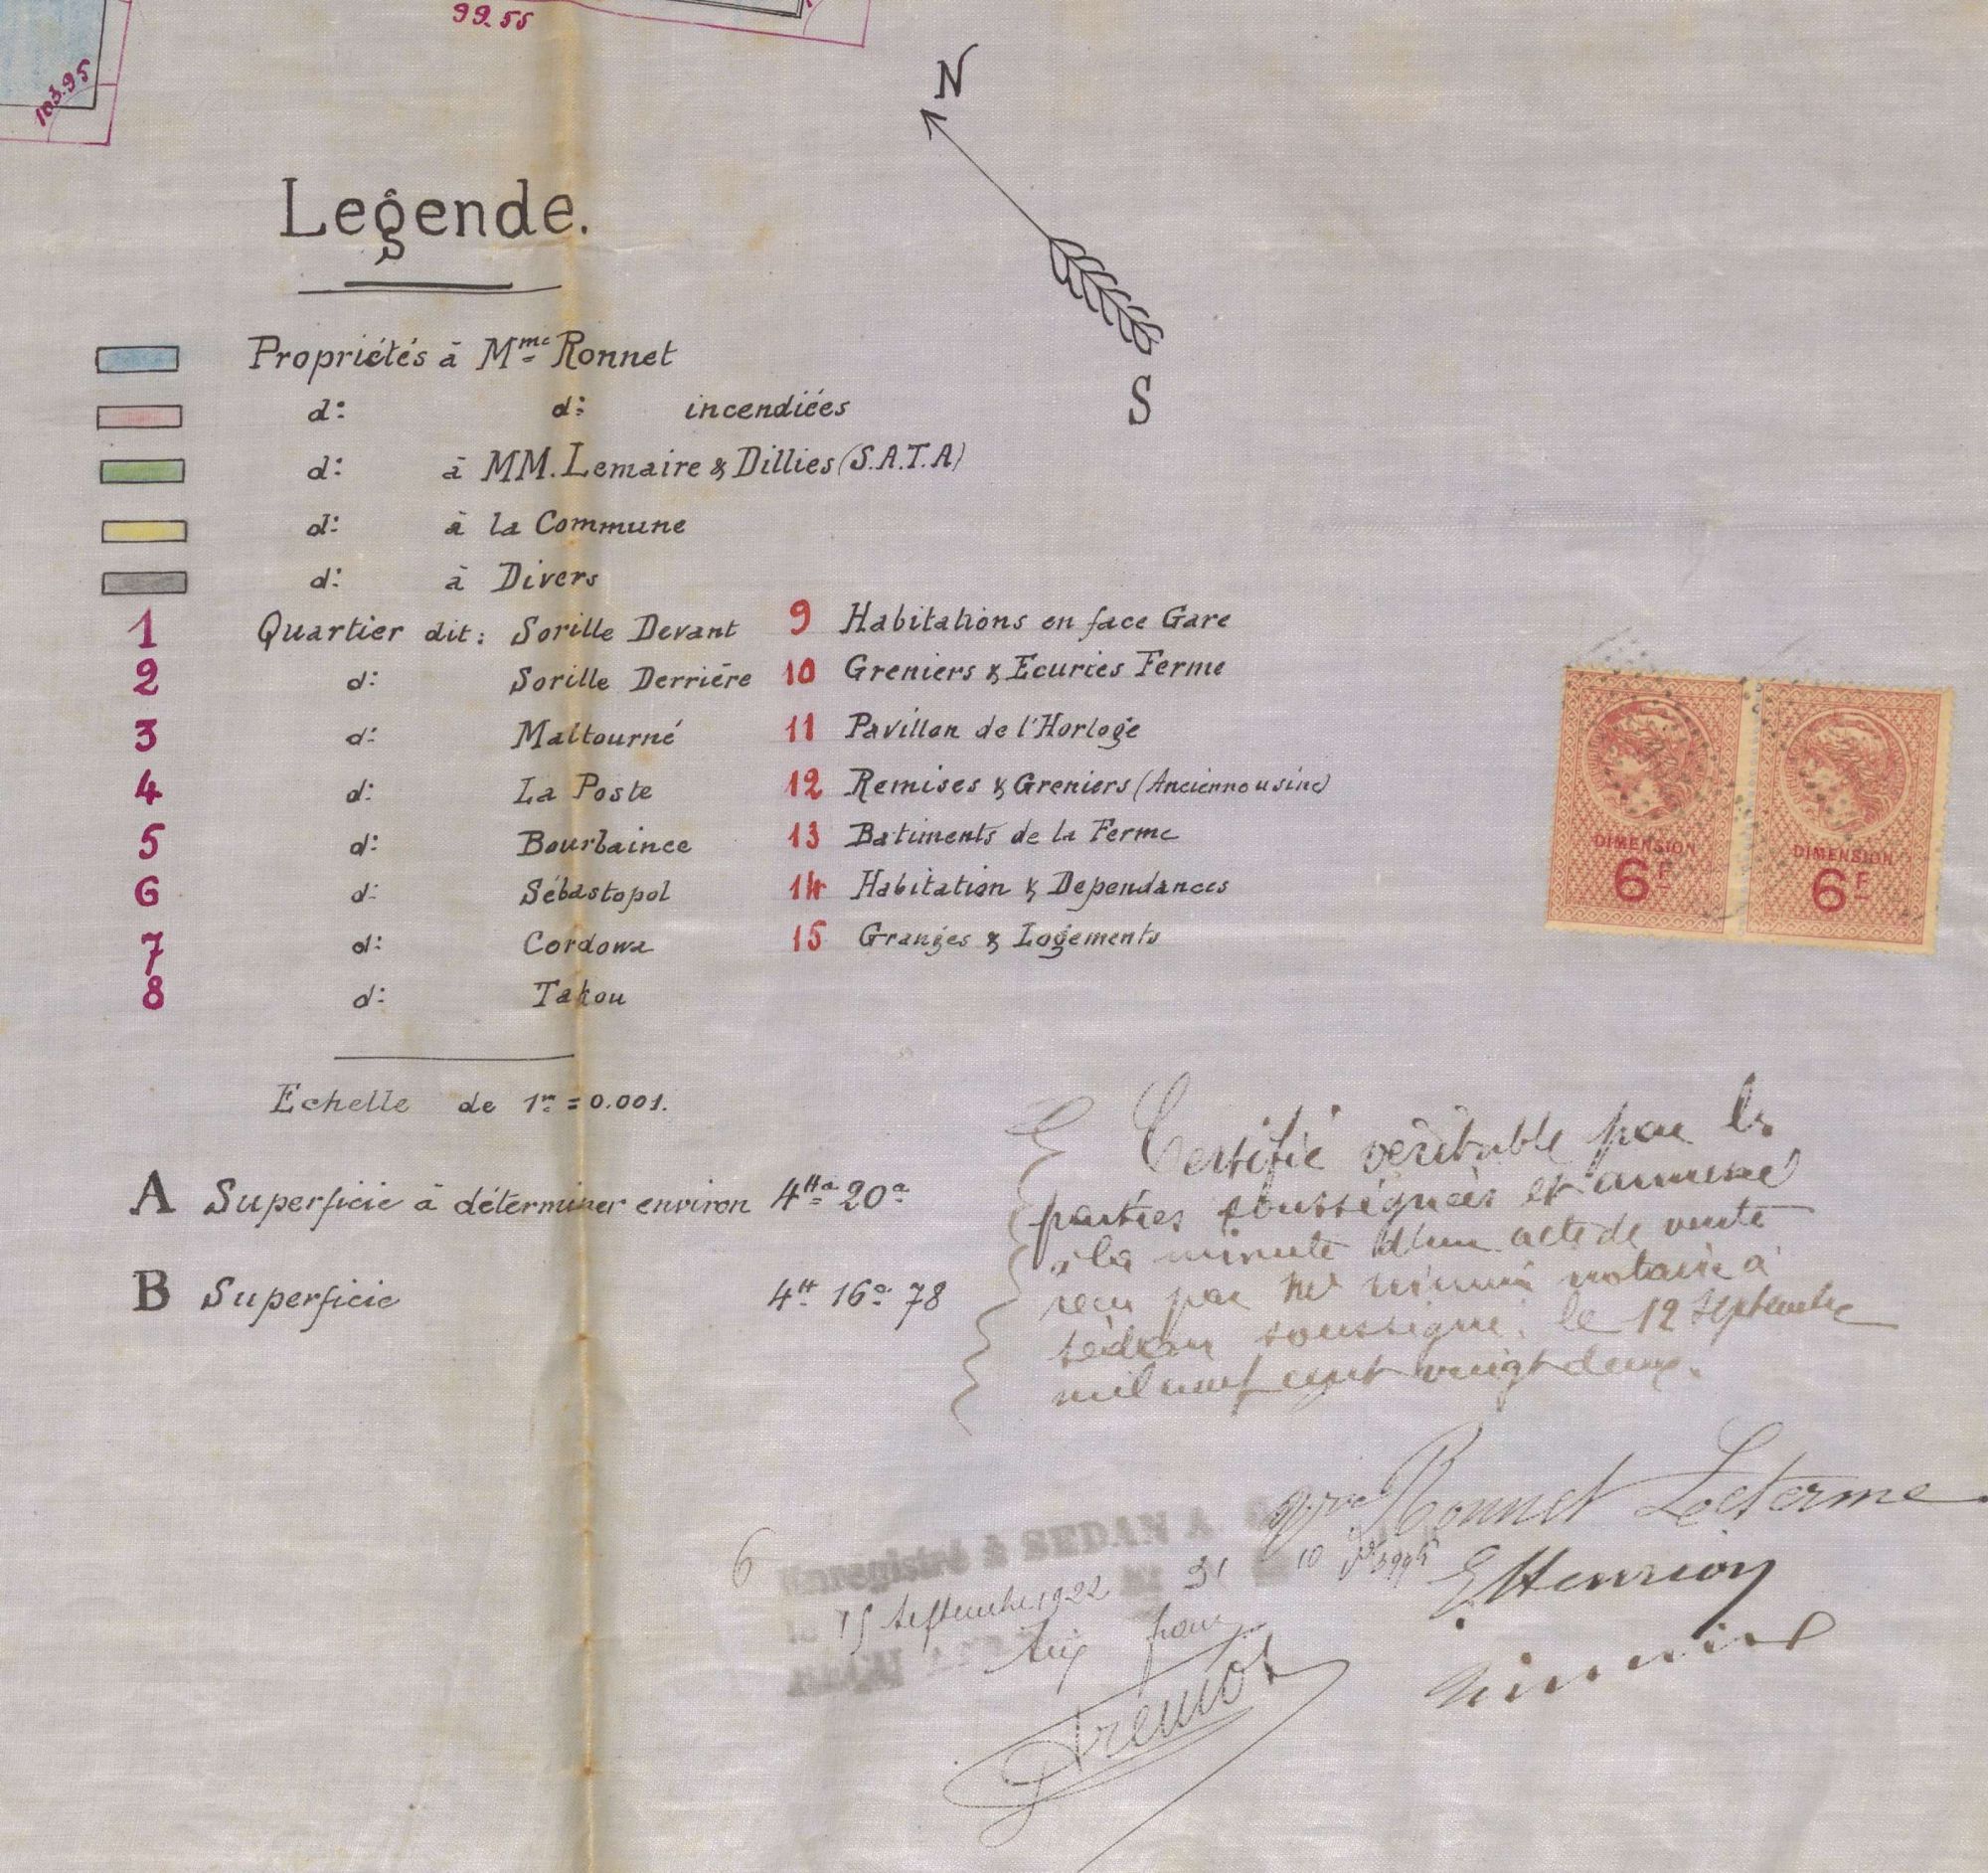 99.55
103.95
N
S
Legende.
Propriétés à Mme Ronnet
d: d: incendiées
d: à MM. Lemaire & Dillies (S.A.T.A)
d: à la Commune
d: à Divers
1 Quartier dit: Sorille Devant
2 d: Sorille Derrière
3 d: Maltourné
4 d: La Poste
5 d: Bourbaince
6 d: Sébastopol
7 d: Cordowa
8 d: Takou
9 Habitations en face Gare
10 Greniers & Ecuries Ferme
11 Pavillon de l'Horloge
12 Remises & Greniers (Ancienne usine)
13 Batiments de la Ferme
14 Habitation & Dependances
15 Granges & Logements
DIMENSION
6F
DIMENSION
6F
Echelle de 1m = 0.001.
A Superficie à déterminer environ 4Ha 20a
B Superficie 4H 16a 78
Certifié véritable par les
parties soussignées et annexé
à la minute d'un acte de vente
reçu par Me notaire à
Sedan soussigné, le 12 Septembre
mil neuf cent vingt deux.
Vve Ronnet Leterme
E Henrion
6 Enregistré à SEDAN A
le 15 Septembre 1922
REÇU francs